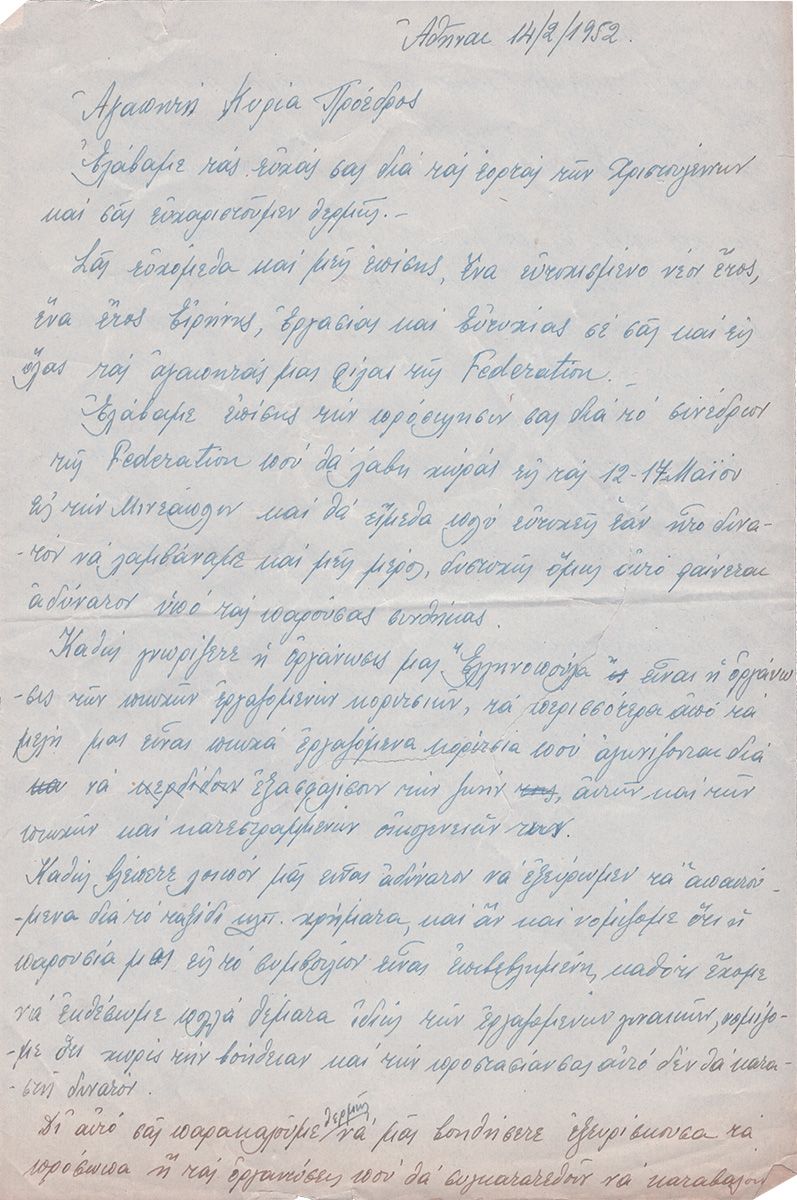 Ἀθῆναι 14/2/1952.
Ἀγαπητὴ Κυρία Πρόεδρος
Ἐλάβαμε τάς εὐχάς σας διά τάς ἑορτάς τῶν Χριστουγέννων
καί σᾶς εὐχαριστοῦμεν θερμῶς.-
Σᾶς εὐχόμεθα καί μεῖς ἐπίσης, ἕνα εὐτυχισμένο νέον ἔτος,
ἕνα ἔτος Εἰρήνης, Ἐργασίας καί Εὐτυχίας σέ σᾶς καί εἰς
ὅλας τάς ἀγαπητάς μας φίλας τῆς Federation.-
Ἐλάβαμε ἐπίσης τήν πρόσκλησίν σας διά τό συνέδριον
τῆς Federation πού θά λάβη χώραν εἰς τάς 12-17 Μαΐου
Εἰς τήν Μινεάπολιν καί θά εἴμεθα πολύ εὐτυχεῖς ἐάν ἦτο δυνα-
-τόν νά λαμβάναμε καί μεῖς μέρος, δυστυχῶς ὅμως αὐτό φαίνεται
ἀδύνατον ὑπό τάς παρούσας συνθήκας.
Καθώς γνωρίζετε ἡ ὀργάνωσις μας "Ἑλληνοπούλα" εἶναι ἡ ὀργάνω
-σις τῶν πτωχῶν ἐργαζομένων κοριτσιῶν, τά περισσότερα ἀπό τά
μέλη μας εἶναι πτωχά ἐργαζόμενα κορίτσια πού ἀγωνίζονται διά
νά κερδίσουν ἐξασφαλίσουν τήν ζωήν της, αὐτῶν καί τῶν
πτωχῶν καί κατεστραμμένων οἰκογενειῶν των.
Καθώς βλέπετε λοιπόν μᾶς εἶναι ἀδύνατον νά ἐξεύρωμεν τά ἀπαιτού-
-μενα διά τό ταξίδι κλπ. χρήματα, καί ἄν καί νομίζομε ὅτι ἡ
παρουσία μας εἰς τό συμβούλιον εἶναι ἐπιβεβλημένη, καθότι ἔχομε
νά ἐκθέσωμε πολλά θέματα ἰδίως τῶν ἐργαζομένων γυναικῶν, νομίζο-
-με ὅτι χωρίς τήν βοήθειαν καί τήν προστασίαν σας αὐτό δέν θά κατα-
-στῆ δυνατόν.
Δι' αὐτό σᾶς παρακαλοῦμε θερμῶς νά μᾶς βοηθήσετε ἐξευρίσκουσα τά
πρόσωπα ἤ τάς ὀργανώσεις πού θά συγκατατεθοῦν νά καταβάλουν